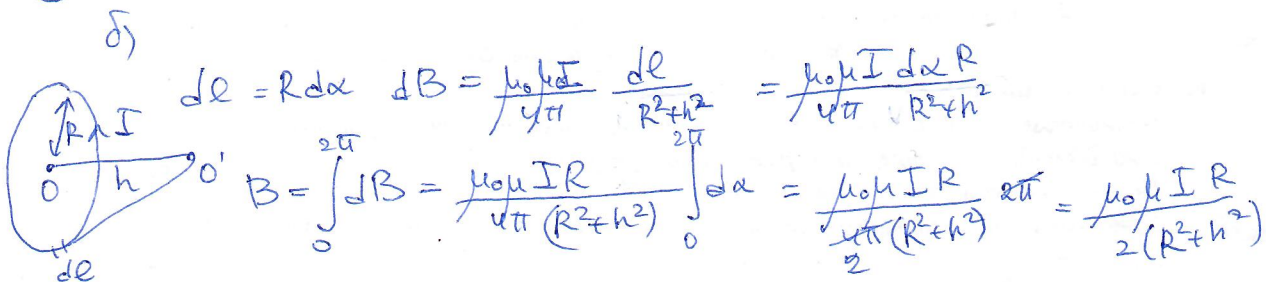 б)
dl = R dα dB = μ₀μI/4π dl/(R²+h²) = μ₀μI dα R/4π (R²+h²)
R I
O h O' B = ∫₀^2π dB = μ₀μIR/4π(R²+h²) ∫₀^2π dα = μ₀μIR/4π(R²+h²) 2π = μ₀μIR/2(R²+h²)
2
dl